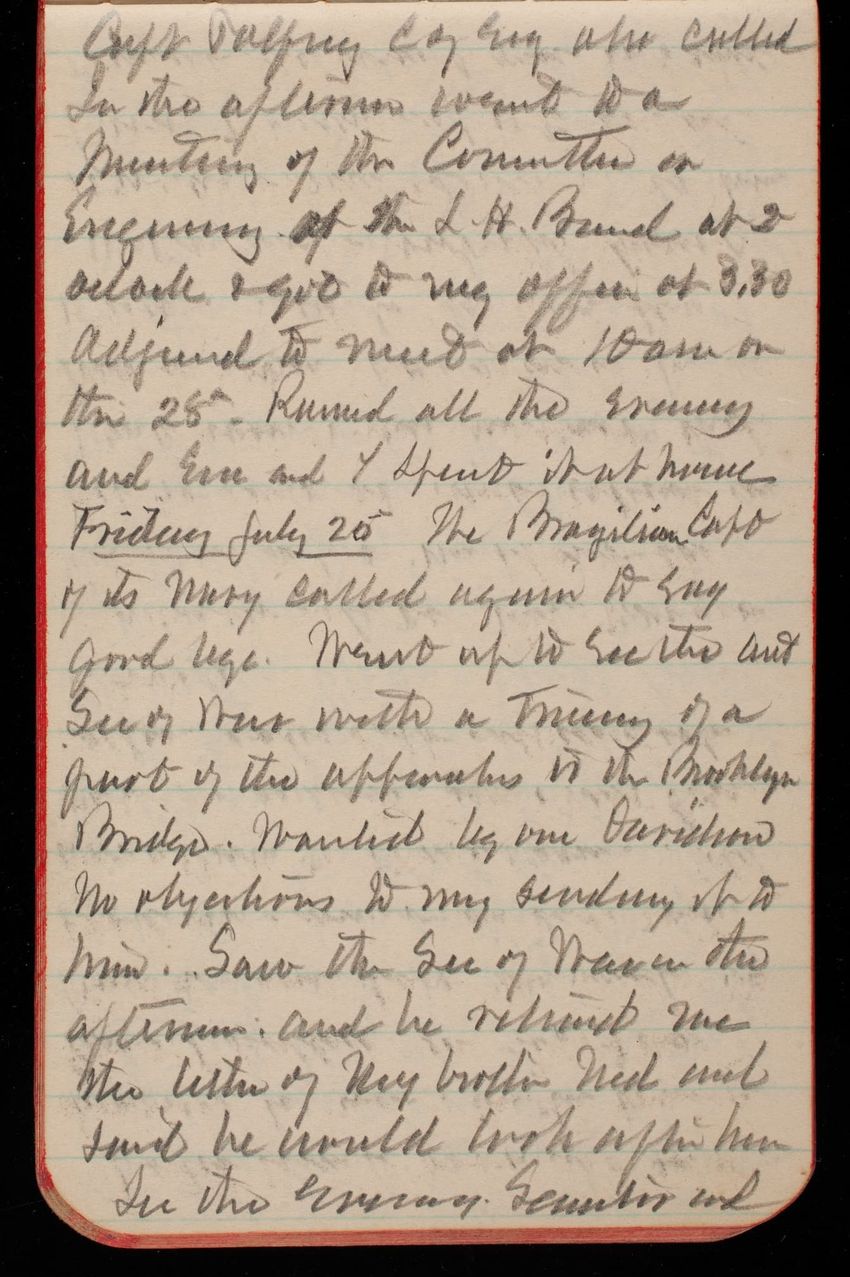 Capt Palfrey C of Eng also called
In the afternoon went to a
Meeting of the Committee on
Engineering of the L. H. Board at 2
oclock & got to my office at 3.30
Adjourned to meet at 10 am on
the 28th. Rained all the evening
and Eva and I spent it at home
Friday July 25 The Brazilian Capt
of its Navy called again to say
good bye. Went up to see the act
Sec of War with a tracing of a
part of the apparatus to the Brooklyn
Bridge. Wanted by one Davidson
No objections to my sending it to
him. Saw the Sec of War in the
afternoon. and he returned me
the letter of my brother Ned and
said he would look after him
In the evening Senator and